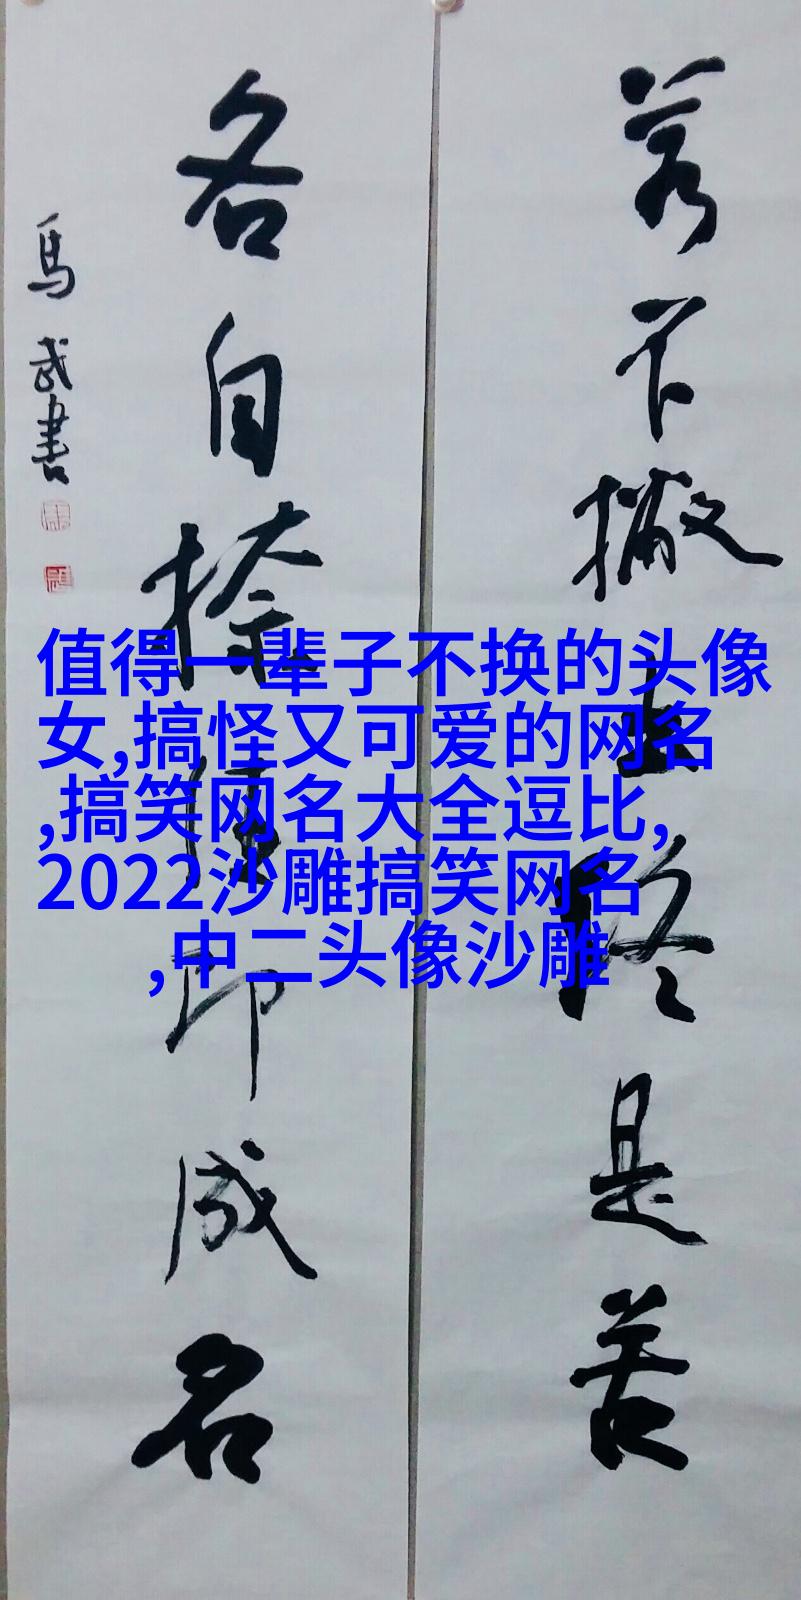 若不撇终是苦
各自捺即成名
馬武書
值得一辈子不换的头像
女,搞怪又可爱的网名
,搞笑网名大全逗比,
2022沙雕搞笑网名
,中二头像沙雕